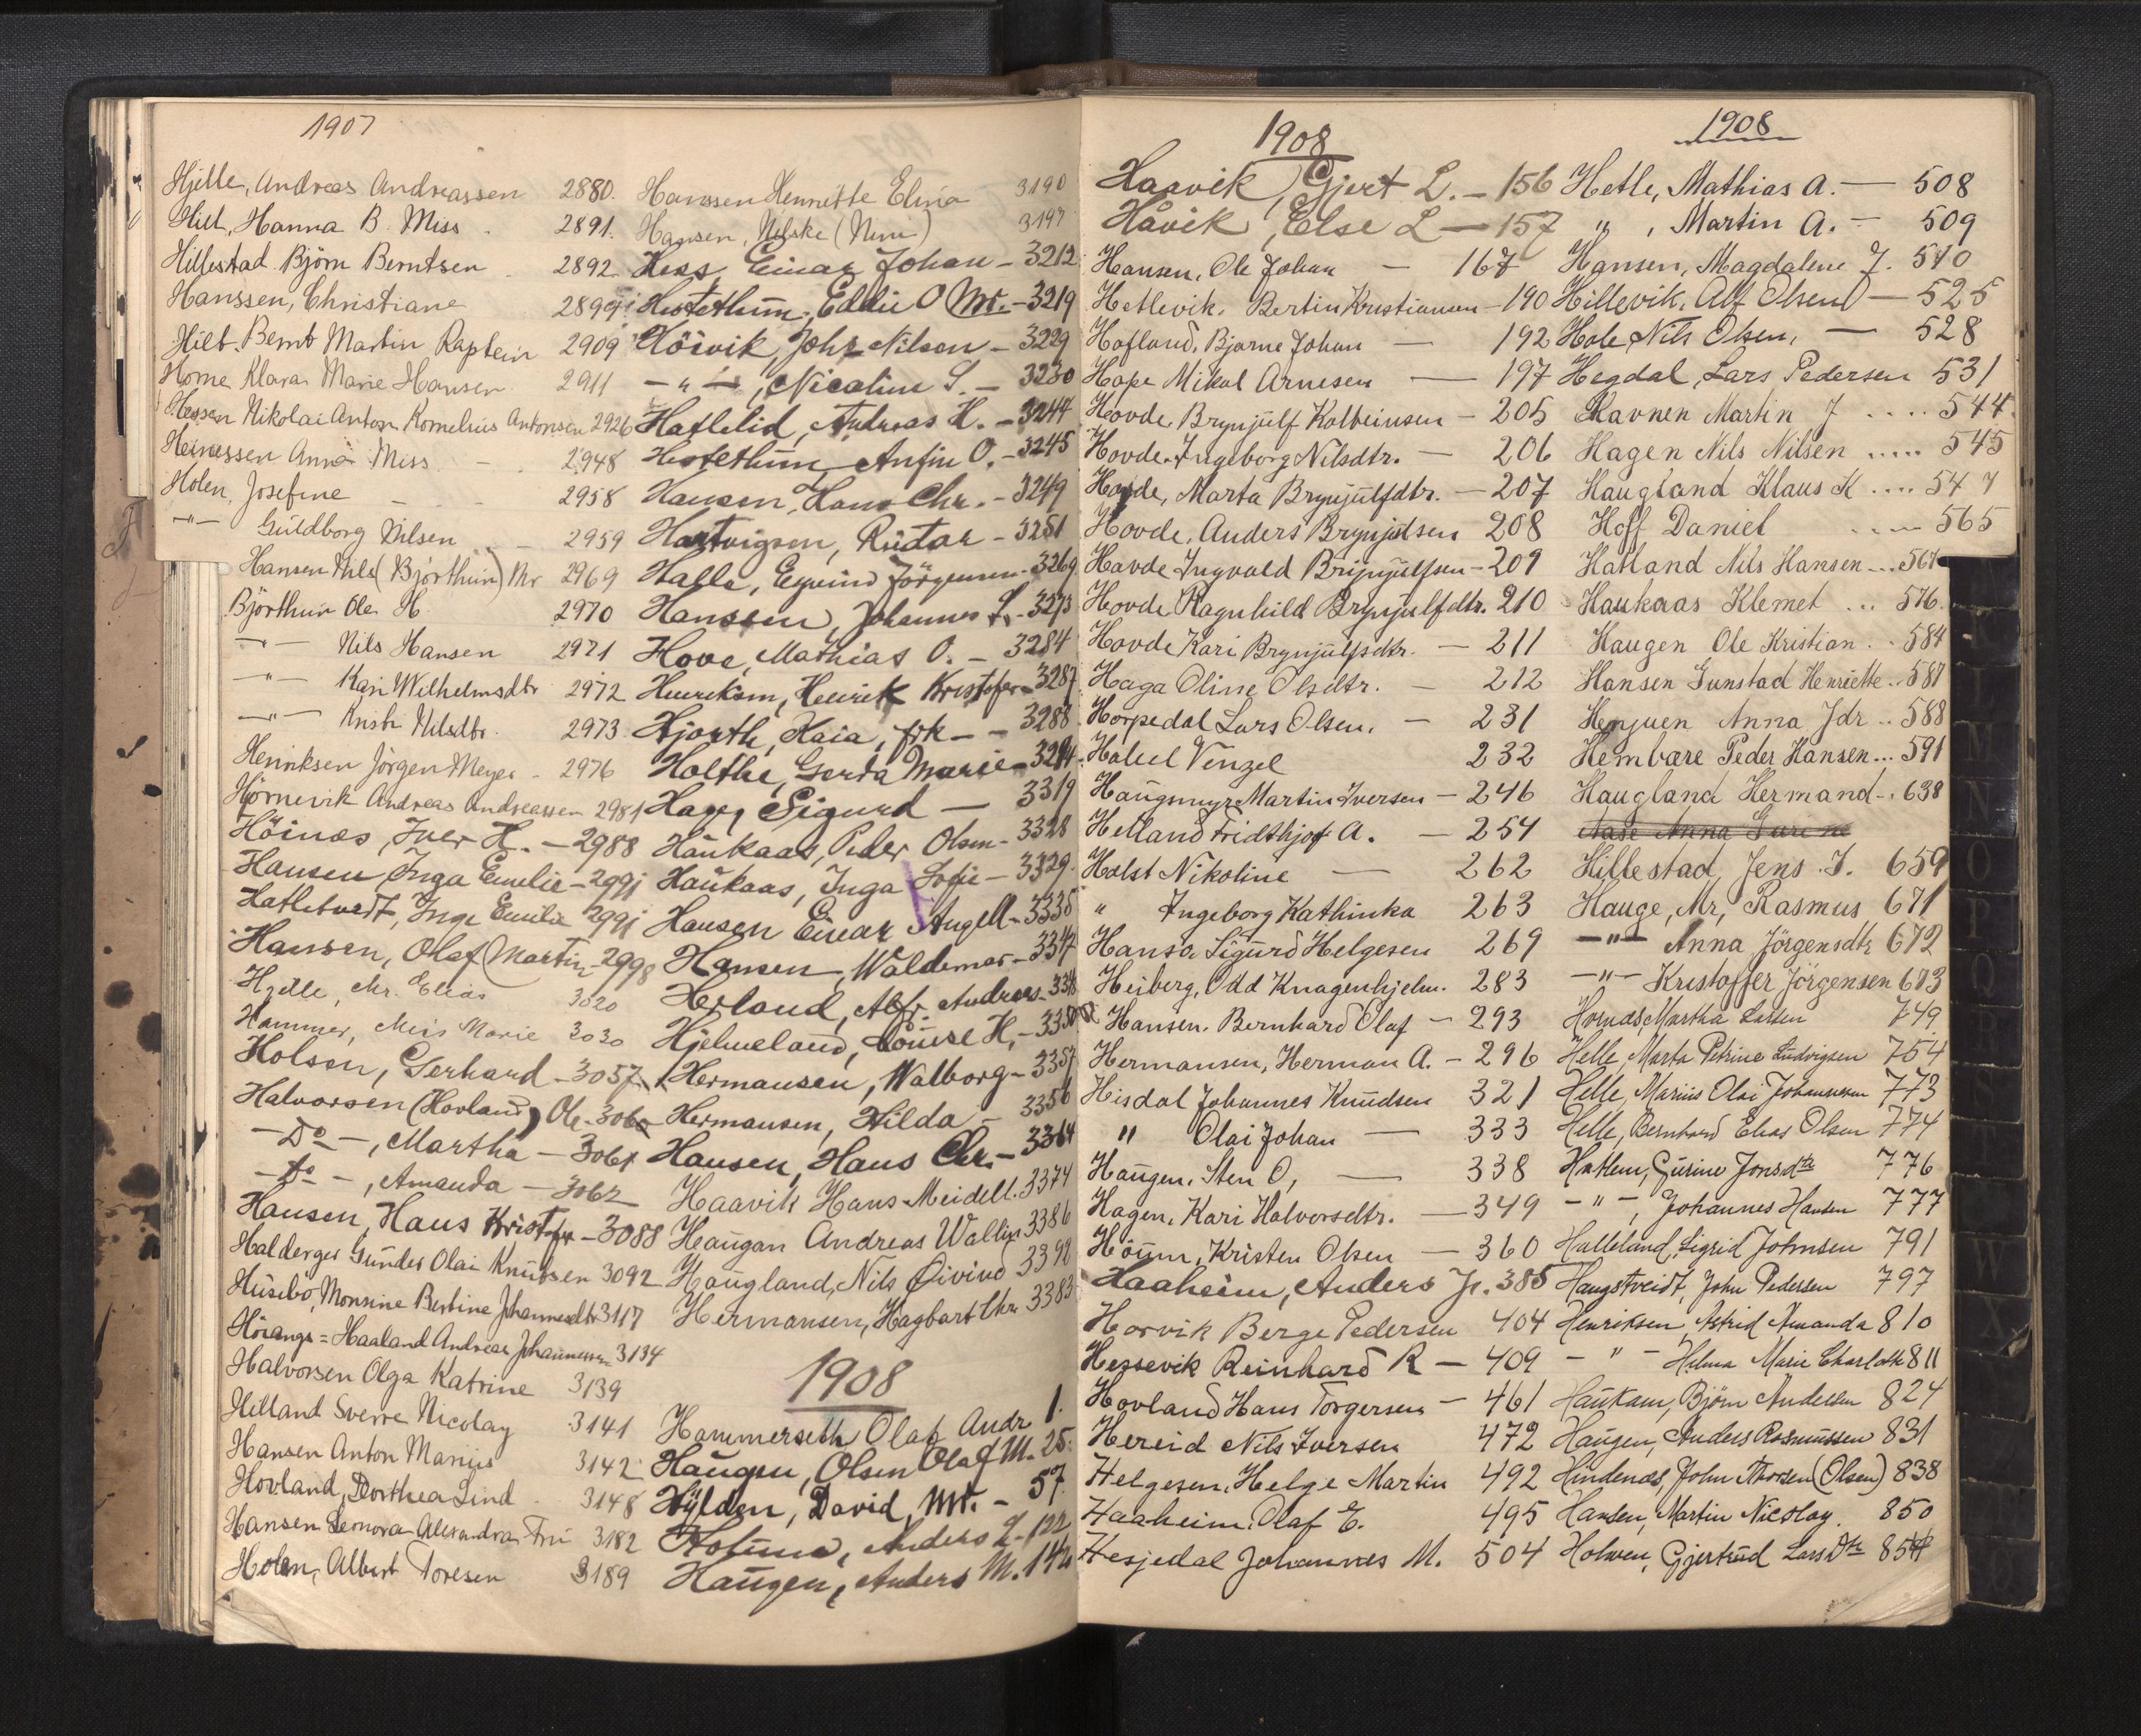 1907
Hjelle, Andreas Andreassen 2880.
Hilt, Hanna B. Miss 2891.
Hillestad Björn Berntsen 2892
Hanssen, Christiane 2899
Hilt. Bernt Martin Kaptein 2909
Horne Klara Marie Hansen 2911
Hessen Nikolai Anton Kornelius Antonsen 2926
Heinessen Anna Miss 2948
Holen, Josefine 2958
—"— Guldborg Nilsen 2959
Hansen Nils (Björthuin) Mr 2969
Björthuin Ole H. 2970
—"— Nils Hansen 2971
—"— Kari Wilhelmsdtr 2972
—"— Nilsdtr. 2973
Henriksen Jörgen Meyer 2976
Hörnevik Andreas Andreassen 2981
Höinæs, Iver H. — 2988
Hansen Inga Emilie — 299
Hatletvedt, Inga Emilie 299
Hansen, Olaf Martin — 2998
Hjelle, Mr. Elias 3020
Hammer, Miss Marie 3030
Holsen, Gerhard — 3057
Halvorsen (Hovland) Ole — 3060
— Do —, Martha — 3061
— Do —, Amanda — 3062
Hansen, Hans Kristofer — 3088
Halderges Gunder Olai Knutsen 3092
Husebö, Monsine Bertine Johannesdtr 3117
Haaland Andreas Johannessen 3134
Halvorsen Olga Katrine 3139
Helland Sverre Nicolay 3141
Hansen Anton Marius 3142
Hovland, Dorthea Lind 3148
Hansen Leonora Alexandra Fru 3182
Holen, Albert Toresen 3189
Hanssen Henriette Elina 3190
Hansen, Nilske (Nini) 3197
Hess, Einar Johan — 3212
Hestethun, Eddie O Mr. — 3219
Höivik, Johs Nilsen — 3229
— " —, Nicoline S. — 3230
Hatlelid, Andreas H. — 3244
Hestethun, Anfin O. — 3245
Hansen, Hans Chr. — 3249
Hartvigsen, Reidar — 3251
Halle, Eyvind Jörgensen — 3269
Hanssen, Johannes L. — 3273
Hove, Mathias O. — 3284
Henriksen, Henrik Kristofer — 3287
Hjorth, Kaia, frk — 3288
Holthe, Gerda Marie — 3294
Hager Sigurd — 3319
Haukaas, Peder Olsen — 3328
Haukaas, Inga Sofie — 3329
Hansen Einar Angell — 3335
Hansen, Waldemar — 3347
Herland, Alfr. Andreas — 3348
Hjelmeland, Louise H, — 3350
Hermansen, Walborg — 3357
Hermansen, Hilda — 3356
Hansen, Hans Chr. — 3364
Haavik Hans Meidell. 3374
Haugan Andreas Wallin 3386
Haugland, Nils Öivind 3392
Hermansen, Hagbart Chr. 3383
1908
Hammerseth Olaf Andr. 1.
Haugen, Olsen Olaf M. 25.
Hylden, David, Mr. — 57.
Anders L. 122
Haugen, Anders M. 142
1908
Haavik, Gjert L. — 156
Håvik, Else L — 157
Hansen, Ole Johan — 167
Hetlevik. Bertin Kristiansen — 190
Hafland, Bjarne Johan — 192
Hope Mikal Arnesen — 197
Hovde. Brynjulf Kolbeinsen — 205
Hovde. Ingeborg Nilsdtr. — 206
Hovde, Marta Brynjulfdtr. — 207
Hovde, Anders Brynjulsen 208
Hovde Ingvald Brynjulfsen — 209
Hovde Ragnhild Brynjulfdtr. 210
Hovde Kari Brynjulfsdtr. — 211
Haga Oline Olsdtr. — 212
Horpedal Lars Olsen. — 231
Habel Venzel 232
Haugsmyr Martin Iversen — 246
Helland Fridthjof A. — 254
Holst Nikoline — 262
" Ingeborg Kathinka 263
Hanso. Sigurd Helgesen 269
Heiberg, Odd Knagenhjelm. 283
Hansen. Bernhard Olaf — 293
Hermansen, Herman A. — 296
Hisdal Johannes Knudsen 321
" Olai Johan — 333
Haugen. Sten O, — 338
Hagen, Kari Halvorsdtr. — 349
Höum, Kristen Olsen — 360
Haaheim, Anders J. 385
Horvik Berge Pedersen 404
Hessevik Reinhard R — 409
Hovland Hans Torgersen — 461
Hereid Nils Iversen 472
Helgesen, Helge Martin 492
Haaheim, Olaf E. 495
Hesjedal Johannes M. 504
1908
Hetle, Mathias A. — 508
" , Martin A. — 509
Hansen, Magdalene J. 510
Hillevik, Alf Olsen — 525
Hole Nils Olsen, — 528
Hegdal, Lars Pedersen 531
Havnen Martin J .... 544
Hagen Nils Nilsen ..... 545
Haugland Klaus K .... 547
Hoff Daniel .... 565
Hatland Nils Hansen ... 567
Haukaas Klemet ... 576.
Haugen Ole Kristian .. 584
Hansen Gunstad Henriette .. 587
Anna Jdr .. 588
Hembare Peder Hansen ... 591
Haugland Hermand .. 638
Aase Anna Gurine
Hillestad, Jens. I. 659
Hauge, Mr, Rasmus 671
—"— Anna Jörgensdtr 672
—"— Kristoffer Jörgensen 673
Martha Larsen 749
Helle, Marta Petrine Ludvigsen 754
Helle, Marius Olai Johannesen 773
Helle, Bernhard Elias Olsen 774
Hatlem, Gurine Jonsdtr 776
— " —, Johannes Hansen 777
Halleland, Sigrid Johnsen 791
Haugstveidt, John Pedersen 797
Henriksen, Astrid Amanda 810
— " — Helma Marie Charlotte 811
Björn Andersen 824
Haugen, Anders Rasmussen 831
Hindenæs, John Thorsen (Olsen) 838
Hansen, Martin Nicolay. 850
Holmen, Gjertrud Lars Dtr 854
M
N
O
P
Q
S
W
X